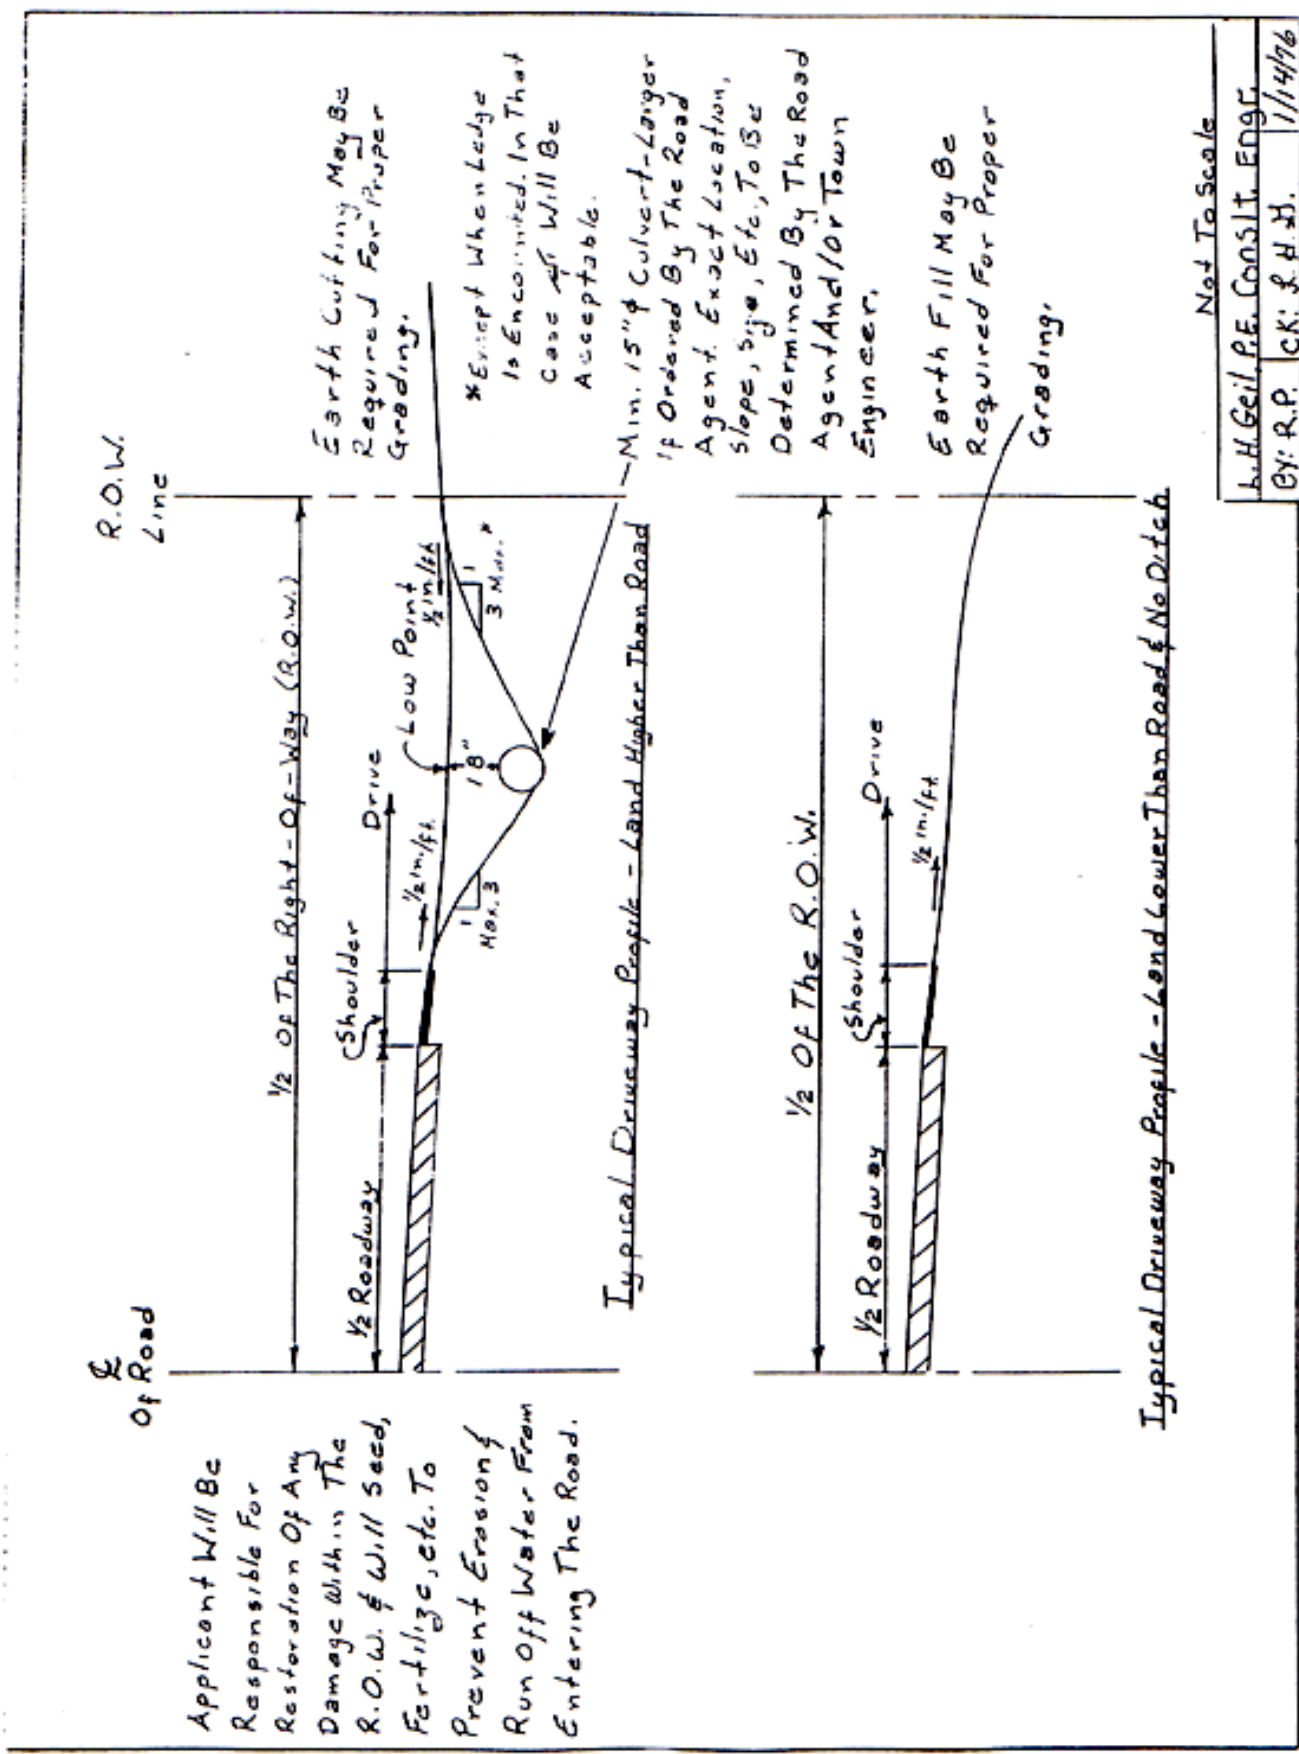 ℄
Of Road
R.O.W.
Line
Applicant Will Be
Responsible For
Restoration Of Any
Damage Within The
R.O.W. & Will Seed,
Fertilize, etc. To
Prevent Erosion &
Run Off Water From
Entering The Road.
1/2 Of The Right-Of-Way (R.O.W.)
1/2 Roadway
Shoulder
Drive
1/2 in./ft.
Low Point
1/2 in/ft.
18"
1
Max. 3
1
3 Max.*
Earth Cutting May Be
Required For Proper
Grading.
*Except When Ledge
Is Encounted. In That
Case Will Be
Acceptable.
Min. 15"⌀ Culvert-Larger
If Ordered By The Road
Agent. Exact Location,
Slope, Size, Etc., To Be
Determined By The Road
Agent And/Or Town
Engineer.
Typical Driveway Profile - Land Higher Than Road
1/2 Of The R.O.W.
1/2 Roadway
Shoulder
Drive
1/2 in./ft.
Earth Fill May Be
Required For Proper
Grading.
Typical Driveway Profile - Land Lower Than Road & No Ditch
Not To Scale
L.H. Geil, P.E. Conslt. Engr.
By: R.P. CK: L.H.H. 1/14/76